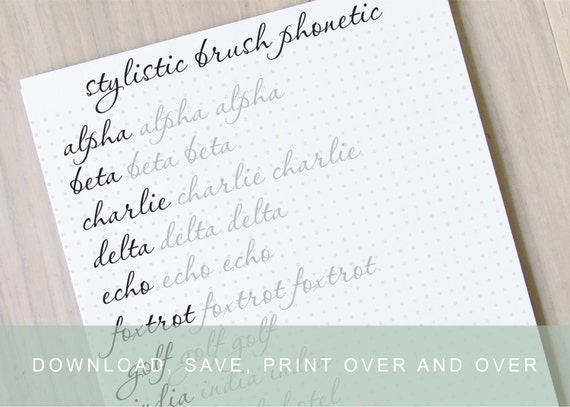 stylistic brush phonetic
alpha alpha alpha
beta beta beta
charlie charlie charlie
delta delta delta
echo echo echo
foxtrot foxtrot foxtrot
golf golf golf
DOWNLOAD, SAVE, PRINT OVER AND OVER
india india
hotel